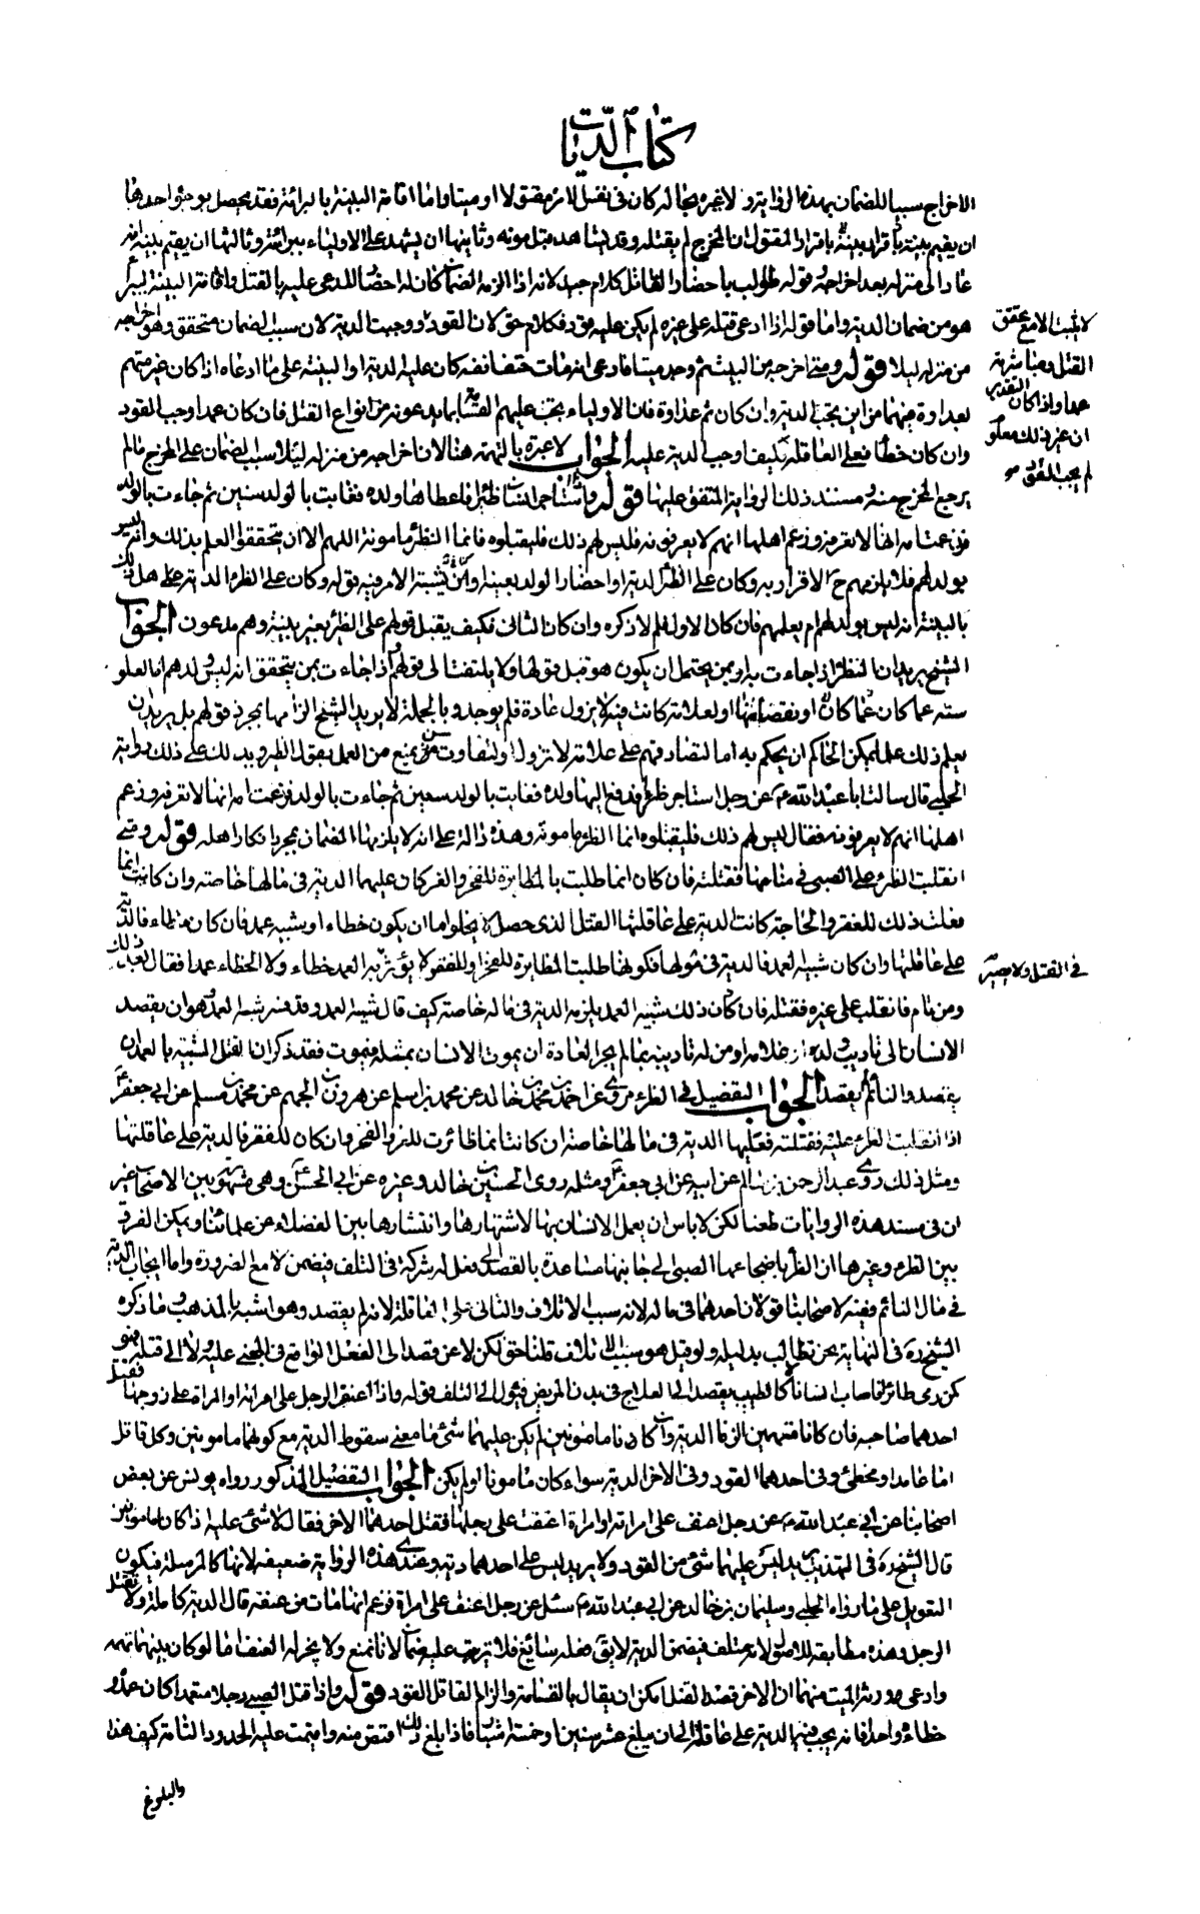 كتاب الديات
الاخراج سببا للضمان بهذه الرواية ولا عبرة بحاله كان في نفسه لانه مقتولا او ميتا واما اقامة البينة بالبرائة فقد يحصل بوجوه احدها
ان يقيم بينة باقرار المقر ان المخرج لم يقتله وقد شاهد قبل موته وثانيها ان يشهد على الاولياء ببرائته وثالثها ان يقيم بينة انه
عاد الى منزله بعد اخراجه قوله طولب باحضار القاتل كلام جيد لانه اذا الزمه الضمان كان له احضار المدعى عليه بالقتل واقامة البينة ليبرأ
هو من ضمان الدية واما قوله اذا ادعى قتله على غيره لم يكن عليه قود فكلام حق لان القود ووجبت الدية لان سبب الضمان متحقق وهو اخراجه
من منزله ليلا قوله ومتى اخرجه من البيت ثم وجد ميتا فادعى انه مات حتف انفه كان عليه الدية او البينة على ما ادعاه اذا كان غير متهم
بعداوة بينهما من اين يجب الدية وان كان ثم عداوة فان الاولياء يجب عليهم القسامة بما يدعونه من انواع القتل فان كان عمدا وجب القود
وان كان خطأ فعلى العاقلة فكيف اوجب الدية عليه الجواب لا عبرة بالتهمة هنا لان اخراجه من منزله ليلا سبب الضمان على المخرج مالم
يرجع المخرج منه ومستند ذلك الرواية المتفق عليها قوله ومن استاجر انسان ظئرا فاعطاها ولده فغابت بالولد سنين ثم جاءت بالولد
فزعمت امه انها لا تعرفه وزعم اهلها انهم لا يعرفونه فليس لهم ذلك فليقبلوه فانما الظئر مامونة اللهم الا ان يتحققوا العلم بذلك وانه ليس
بولد لهم فلا يلزمهم ح الاقرار به وكان على الظئر الدية او احضار الولد بعينه او من يشتبه الامر فيه قوله وكان على الظئر الدية هل ذلك
بالبينة انه ليس بولد لهم ام بعلمهم فان كان الاول فلم لا ذكره وان كان الثاني فكيف يقبل قولهم على الظئر بغير بينة وهم مدعون الجواب
الشيخ يريد ان الظئر اذا جاءت به او بمن يحتمل ان يكون هو قبل قولها ولا يلتفت الى قولهم اذا جاءت بمن يتحقق انه ليس ولدهم اما لعلو
سنه عما كان او نقصانها او لعلامة كانت فيه لا يزول عادة فلم يوجد وبالجملة لا يريد الشيخ الزامها بمجرد قولهم بل يريد ان
يعلم ذلك علما يمكن الحاكم ان يحكم به اما لتصادقهم على علامة لا تزول او لتفاوت سن يمنع من العمل بقول الظئر ويدلك على ذلك رواية
الحلبي قال سالت ابا عبد الله ع عن رجل استاجر ظئرا فدفع اليها ولده فغابت بالولد سنين ثم جاءت بالولد فزعمت امه انها لا تعرفه وزعم
اهلها انهم لا يعرفونه فقال ليس لهم ذلك فليقبلوه انما الظئر مامونة وهذه دالة على انه لا يلزمها الضمان بمجرد انكار اهله قوله ومتى
انقلبت الظئر على الصبي في منامها فقتلته فان كان انما طلبت بالمظايرة للفخر والعز كان عليها الدية في مالها خاصة وان كانت انما
فعلت ذلك للفقر والحاجة كانت الدية على عاقلتها القتل الذي حصل لا يخلو اما ان يكون خطاء او شبيه عمد فان كان خطاء فالدية
على عاقلتها وان كان شبيه العمد فالدية في مالها فكونها طلبت المظايرة للفخر او للفقر لا يؤثر به العمد خطاء ولا الخطاء عمدا فقال بعد ذلك
ومن نام فانقلب على غيره فقتله فان كان ذلك شبيه العمد يلزمه الدية في ماله خاصة كيف قال شبيه العمد وقد فسر شبيه العمد وهو ان يقصد
الانسان الى تاديب ولده او غلامه او من له تاديبه بما لم يجر العادة ان يموت الانسان بمثله فيموت فقد ذكر ان القتل الشبيه بالعمد ان
يقصد والنائم لم يقصد الجواب التفصيل في الظئر مروي عن احمد بن محمد بن خالد عن محمد بن اسلم عن هرون بن الجهم عن محمد بن مسلم عن ابي جعفر ع
اذا انقلبت الظئر عليه فقتلته فعليها الدية في مالها خاصة ان كانت انما ظائرت للعز والفخر وان كان للفقر فالدية على عاقلتها
ومثل ذلك روى عبد الرحمن بن سالم عن ابيه عن ابي جعفر ع ومثله روى الحسين بن خالد وغيره عن ابي الحسن ع وهي مشهورة بين الاصحاب غير
ان في سند هذه الروايات طعنا لكن لا باس ان يعمل الانسان بها لاشتهارها وانتشارها بين الفضلاء من علمائنا ويمكن الفرق
بين الظئر وغيرها ان الظئر باضجاعها الصبي الى جانبها مساعدة بالقصد الى فعل له شركة في التلف فيضمن لا مع الضرورة واما ايجاب الدية
في مال النائم ففيه لاصحابنا قولان احدهما في ماله لانه سبب الاتلاف والثاني على العاقلة لانه لم يقصد وهو اشبه بالمذهب وما ذكره
الشيخ ره في النهاية نحن نطالب بدليله ولو قيل هو سبب التلاف قلنا حق لكن لا عن قصد الى الفعل الواقع في المجني عليه ولا الى قتله فهو
كمن رمى طائرا فاصاب انسانا لا كالطبيب يقصد الى العلاج في بدن المريض فيئول الى التلف قوله واذا اعنف الرجل على امراته او المراة على زوجها فقتل
احدهما صاحبه فان كانا متهمين الزما الدية وان كانا مامونين لم يكن عليهما شئ ما معنى سقوط الدية مع كونهما مامونين وكل قاتل
اما عامد او مخطئ وفي احدهما القود وفي الاخر الدية سواء كان مامونا او لم يكن الجواب التفصيل المذكور رواه يونس عن بعض
اصحابنا عن ابي عبد الله ع عن رجل اعنف على امراته او امراة اعنفت على رجلها فقتل احدهما الاخر فقال لا شئ عليه اذا كانا مامونين
قال الشيخ ره في التهذيب يريد ليس عليهما شئ من القود ولا يريد ليس على احدهما دية وعندي هذه الرواية ضعيفة لانها كالمرسلة فيكون
التعويل على ما رواه الحلبي وسليمان بن خالد عن ابي عبد الله ع سئل عن رجل اعنف على امراة فزعم انها ماتت من عنفه قال الدية كاملة ولا يقتل
الرجل وهذه مطابقة للاصول لانه متلف فيضمن الدية لا يق فعله سائغ فلا يترتب عليه ضمان لانا نمنع ولا يجوز له العنف اما لو كان بينهما تهمة
وادعى ورثة الميت منهما ان الاخر قصد القتل امكن ان يقال بالقسامة والزام القاتل القود قوله واذا قتل الصبي رجلا متعمدا كان عمده
خطاءه واحدا فانه يجب فيه الدية على عاقلته الى ان يبلغ عشر سنين او خمسة اشبار فاذا بلغ ذلك اقتص منه واقيمت عليه الحدود التامة كيف هذا
والبلوغ
لا يثبت الا مع تحقق
القتل ومباشرته
عمدا واذا كان التقدير
ان غير ذلك معلو
لم يجب القود
في القتل ولا يصير